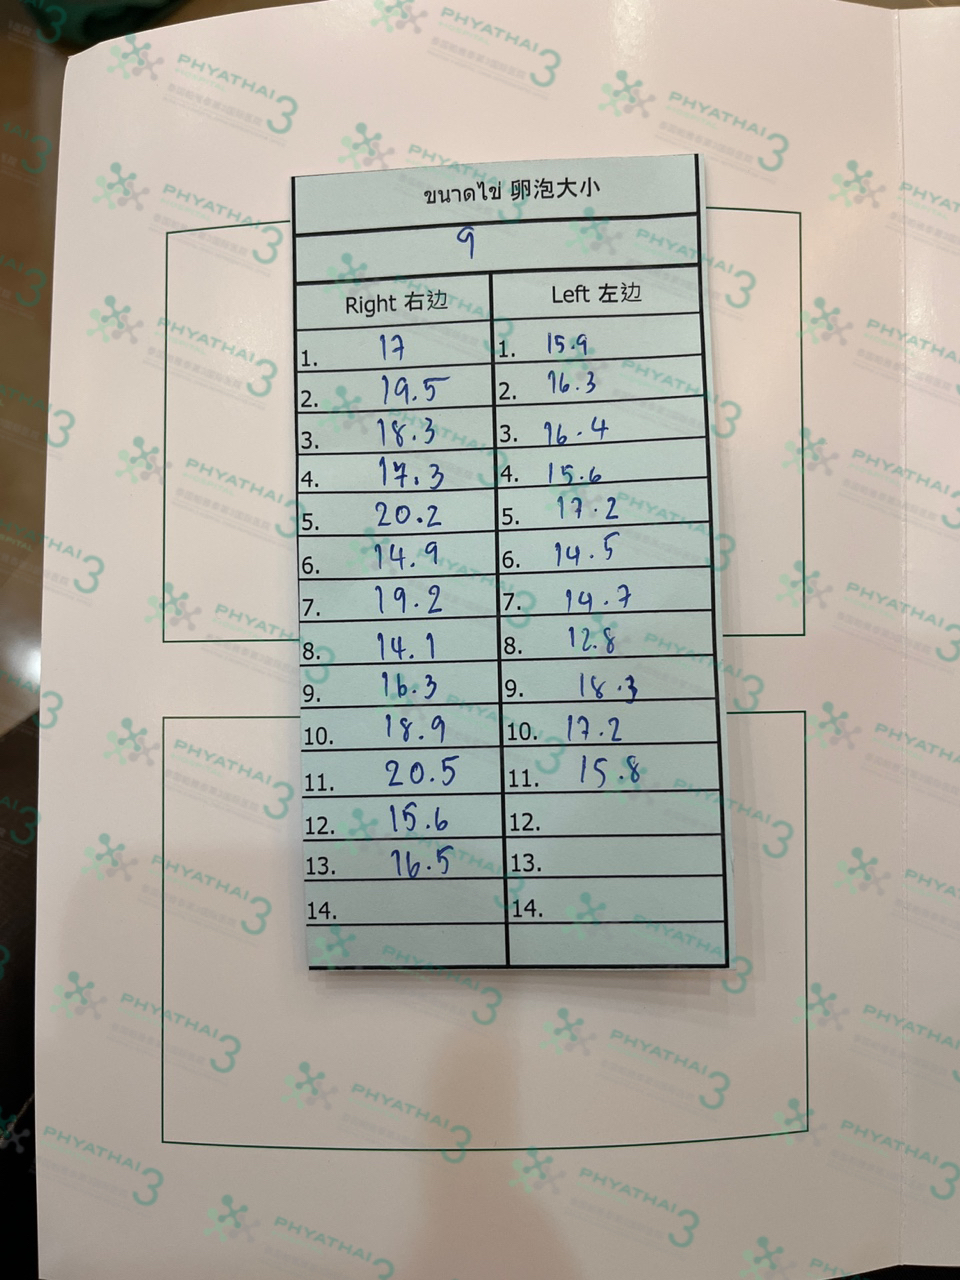 ขนาดไข่ 卵泡大小
9
Right 右边 Left 左边
1. 17 1. 15.9
2. 19.5 2. 16.3
3. 18.3 3. 16.4
4. 17.3 4. 15.6
5. 20.2 5. 17.2
6. 14.9 6. 14.5
7. 19.2 7. 14.7
8. 14.1 8. 12.8
9. 16.3 9. 18.3
10. 18.9 10. 17.2
11. 20.5 11. 15.8
12. 15.6 12.
13. 16.5 13.
14. 14.
PHYATHAI 3